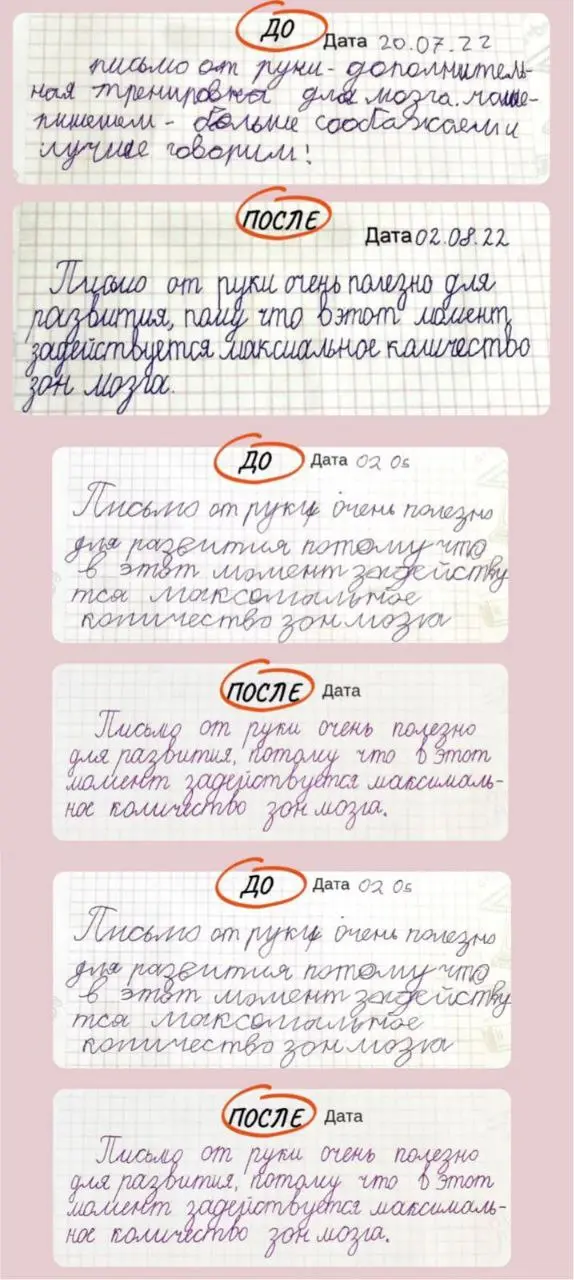 ДО Дата 20.07.22
письмо от руки - дополнитель-
ная тренировка для мозга.
пишешем - больше соображаем и
лучше говорим!
ПОСЛЕ
Дата 02.08.22
Письмо от руки очень полезно для
развития, пому что в этот момент
задействуется максиальное количество
зон мозга.
ДО Дата 02 05
Письмо от руки очень полезно
для развития потому что
в этот момент задейству
тся максомальное
количество зон мозга
ПОСЛЕ Дата
Письмо от руки очень полезно
для развития, потому что в этот
момент задействуется максималь-
ное количество зон мозга.
ДО Дата 02 05
Письмо от руки очень полезно
для развития потому что
в этот момент задейству
тся максомальное
количество зон мозга
ПОСЛЕ Дата
Письмо от руки очень полезно
для развития, потому что в этот
момент задействуется максималь-
ное количество зон мозга.